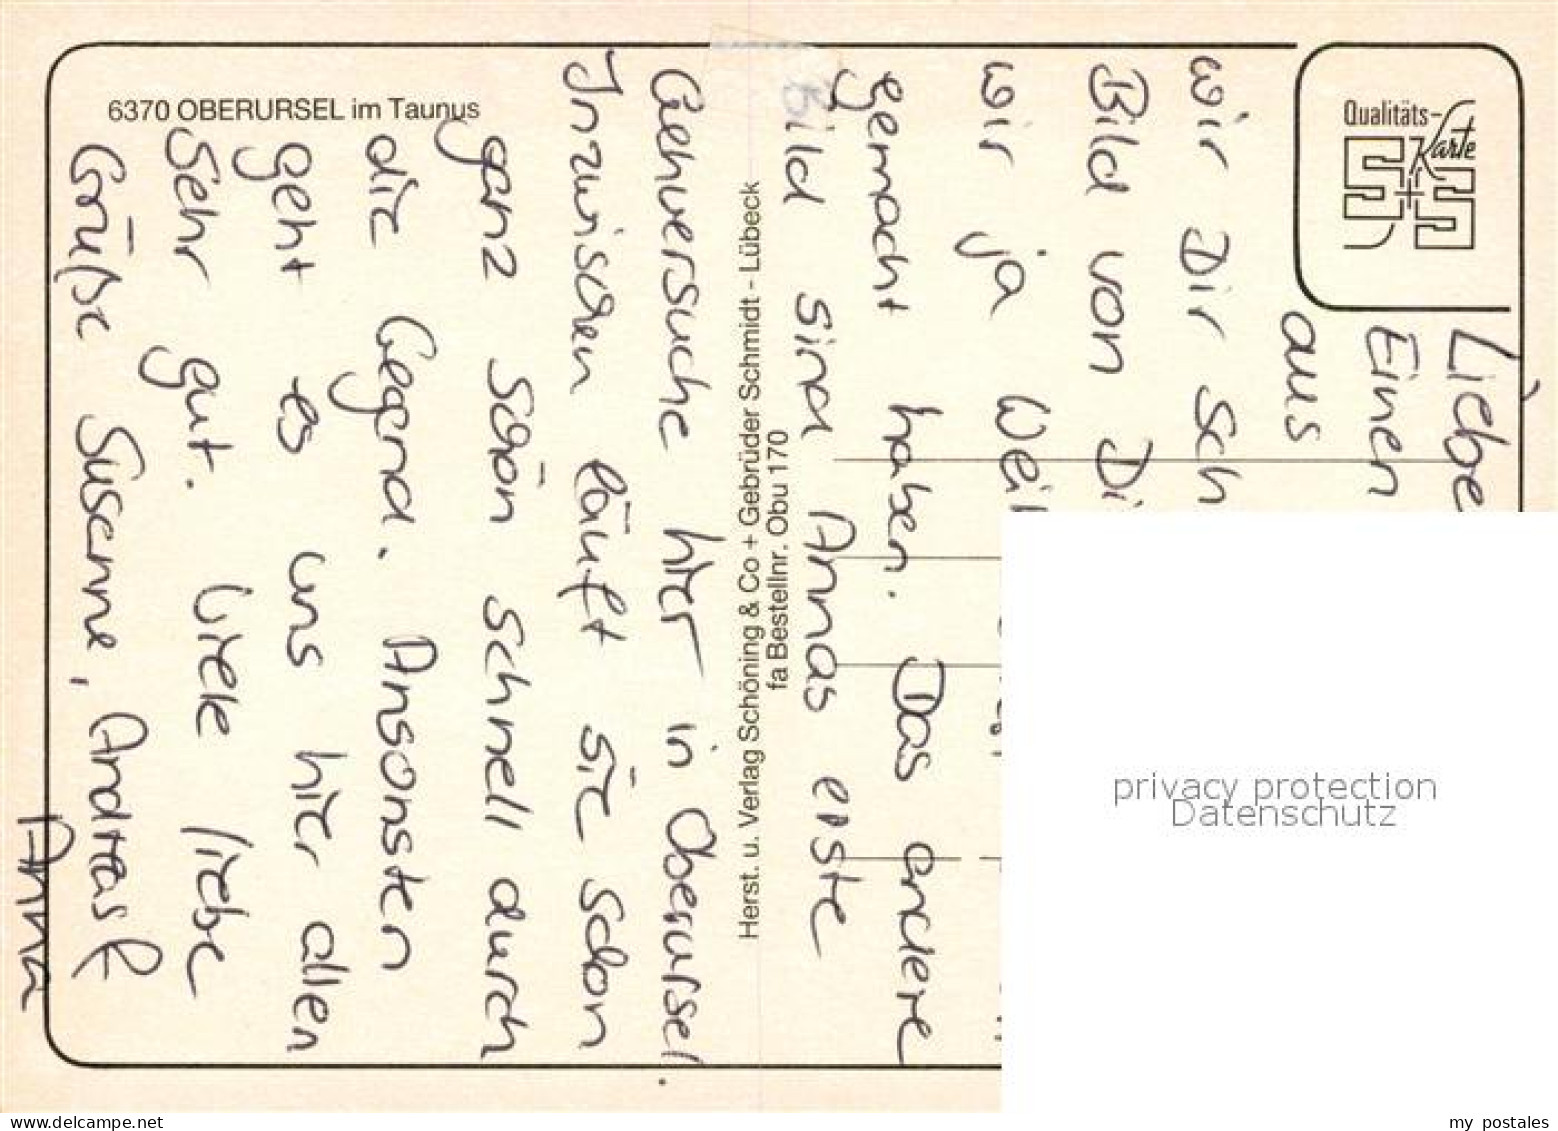 6370 OBERURSEL im Taunus
Qualitäts-
Karte
S+S
Herst. u. Verlag Schöning & Co + Gebrüder Schmidt - Lübeck
fa Bestellnr. Obu 170
Liebe
Einen
aus
wir Dir sch
Bild von Di
wir ja Weih
gemacht haben. Das andere
Bild sind Annas erste
Gehversuche hier in Oberursel.
Inzwischen läuft sie schon
ganz schön schnell durch
die Gegend. Ansonsten
geht es uns hier allen
sehr gut. Viele liebe
Grüße Susanne, Andreas &
Anna
privacy protection
Datenschutz
www.delcampe.net
my_postales